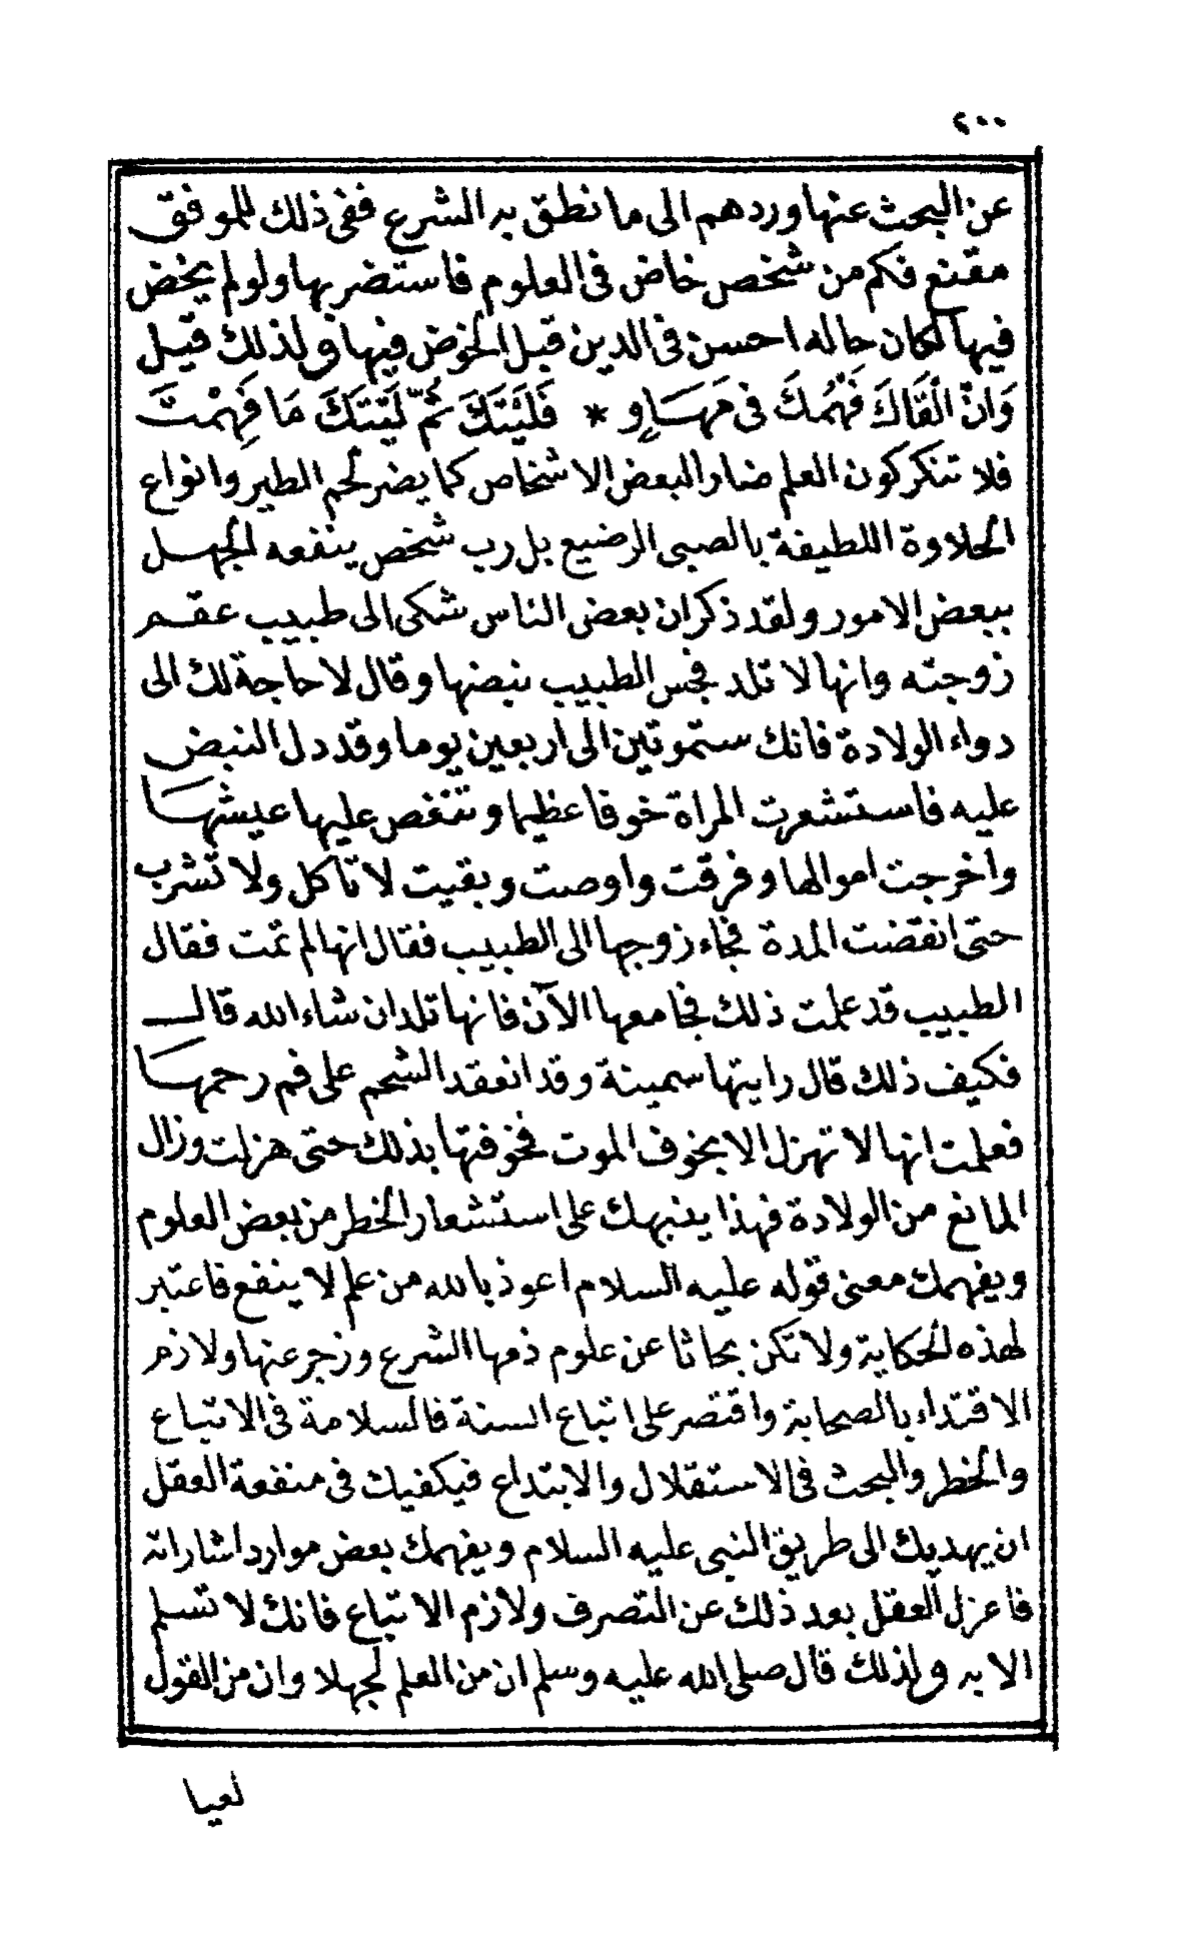 ٢٠٠
عن البحث عنها وردهم الى ما نطق به الشرع ففى ذلك للموفق
مقنع فكم من شخص خاض فى العلوم فاستضر بها ولو لم يخض
فيها لكان حاله احسن فى الدين قبل الخوض فيها ولذلك قيل
وَانْ الْقَاكَ فَهْمُكَ فى مَهَاوٍ * فَلَيْتَكَ ثُمّ لَيْتَكَ مَا فَهِمْتَ
فلا تنكر كون العلم ضارا لبعض الاشخاص كما يضر لحم الطير وانواع
الحلاوة اللطيفة بالصبى الرضيع بل رب شخص ينفعه الجهل
ببعض الامور ولقد ذكر ان بعض الناس شكى الى طبيب عقم
زوجته وانها لا تلد فجس الطبيب نبضها وقال لا حاجة لك الى
دواء الولادة فانك ستموتين الى اربعين يوما وقد دل النبض
عليه فاستشعرت المراة خوفا عظيما وتنغص عليها عيشها
واخرجت اموالها وفرقت واوصت وبقيت لا تاكل ولا تشرب
حتى انقضت المدة فجاء زوجها الى الطبيب فقال انها لم تمت فقال
الطبيب قد علمت ذلك فجامعها الآن فانها تلد ان شاء الله قال
فكيف ذلك قال رايتها سمينة وقد انعقد الشحم على فم رحمها
فعلمت انها لا تهزل الا بخوف الموت فخوفتها بذلك حتى هزلت وزال
المانع من الولادة فهذا ينبهك على استشعار الخطر من بعض العلوم
ويفهمك معنى قوله عليه السلام اعوذ بالله من علم لا ينفع فاعتبر
لهذه الحكاية ولا تكن بحاثا عن علوم ذمها الشرع وزجر عنها ولازم
الاقتداء بالصحابة واقتصر على اتباع السنة فالسلامة فى الاتباع
والخطر والبحث فى الاستقلال والابتداع فيكفيك فى منفعة العقل
ان يهديك الى طريق النبى عليه السلام ويفهمك بعض موارد اشاراته
فاعزل العقل بعد ذلك عن التصرف ولازم الاتباع فانك لا تسلم
الا به ولذلك قال صلى الله عليه وسلم ان من العلم لجهلا وان من القول
لعيا